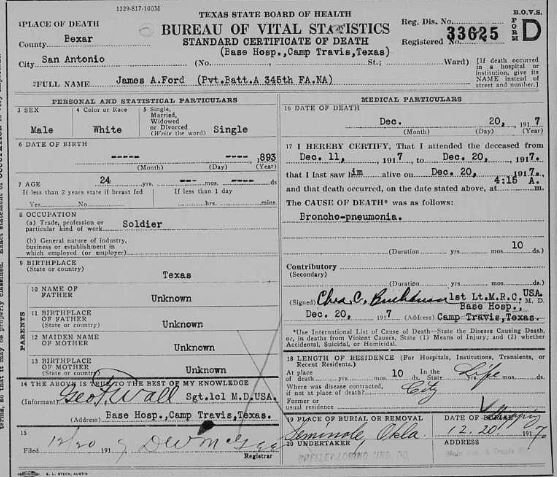 1129-517-100M
TEXAS STATE BOARD OF HEALTH
B.O.V.S.
BUREAU OF VITAL STATISTICS
STANDARD CERTIFICATE OF DEATH
Reg. Dis. No.
Registered No. 33625
FORM D
1 PLACE OF DEATH
County Bexar
(Base Hosp., Camp Travis, Texas)
City San Antonio (No. St.; Ward)
[If death occurred in a hospital or institution, give its NAME instead of street and number.]
2 FULL NAME James A. Ford (Pvt. Batt. A 345th FA, NA)
PERSONAL AND STATISTICAL PARTICULARS
3 SEX
Male
4 Color or Race
White
5 Single, Married, Widowed or Divorced (Write the word) Single
6 DATE OF BIRTH
----- ----- , 893
(Month) (Day) (Year)
7 AGE 24 yrs. --- mos. ---- ds.
If less than 2 years state if breast fed If less than 1 day
Yes No hrs. mins.
8 OCCUPATION
(a) Trade, profession or particular kind of work Soldier
(b) General nature of Industry, business or establishment in which employed (or employer)
9 BIRTHPLACE
(State or country) Texas
PARENTS
10 NAME OF FATHER Unknown
11 BIRTHPLACE OF FATHER
(State or country) Unknown
12 MAIDEN NAME OF MOTHER Unknown
13 BIRTHPLACE OF MOTHER
(State or country) Unknown
14 THE ABOVE IS TRUE TO THE BEST OF MY KNOWLEDGE
(Informant) Geo Wall Sgt. 1cl M.D. USA.
(Address) Base Hosp., Camp Travis, Texas.
15
Filed 12/20 191
Registrar
MEDICAL PARTICULARS
16 DATE OF DEATH
Dec. 20, 1917
(Month) (Day) (Year)
17 I HEREBY CERTIFY, That I attended the deceased from
Dec. 11, 1917 to Dec. 20, 1917.
that I last saw him alive on Dec. 20, 1917.
and that death occurred, on the date stated above, at 4:15 A. m.
The CAUSE OF DEATH* was as follows:
Broncho-pneumonia.
(Duration) yrs. mos. 10 ds.
Contributory
(Secondary)
(Duration) yrs. mos. ds.
(Signed) Chas. C. 1st Lt. M.R.C. USA. M. D.
Base Hosp.,
Dec. 20, 1917 (Address) Camp Travis, Texas.
*Use International List of Cause of Death—State the Disease Causing Death, or, in deaths from Violent Causes, State (1) Means of Injury; and (2) whether Accidental, Suicidal, or Homicidal.
18 LENGTH OF RESIDENCE (For Hospitals, Institutions, Transients, or Recent Residents.)
At place of death yrs. mos. 10 ds. In the State Life yrs. mos. ds.
Where was disease contracted, if not at place of death? City
Former or usual residence
19 PLACE OF BURIAL OR REMOVAL
Seminole, Okla.
DATE OF BURIAL
12.20 1917
20 UNDERTAKER
ADDRESS
E. L. STECK, AUSTIN